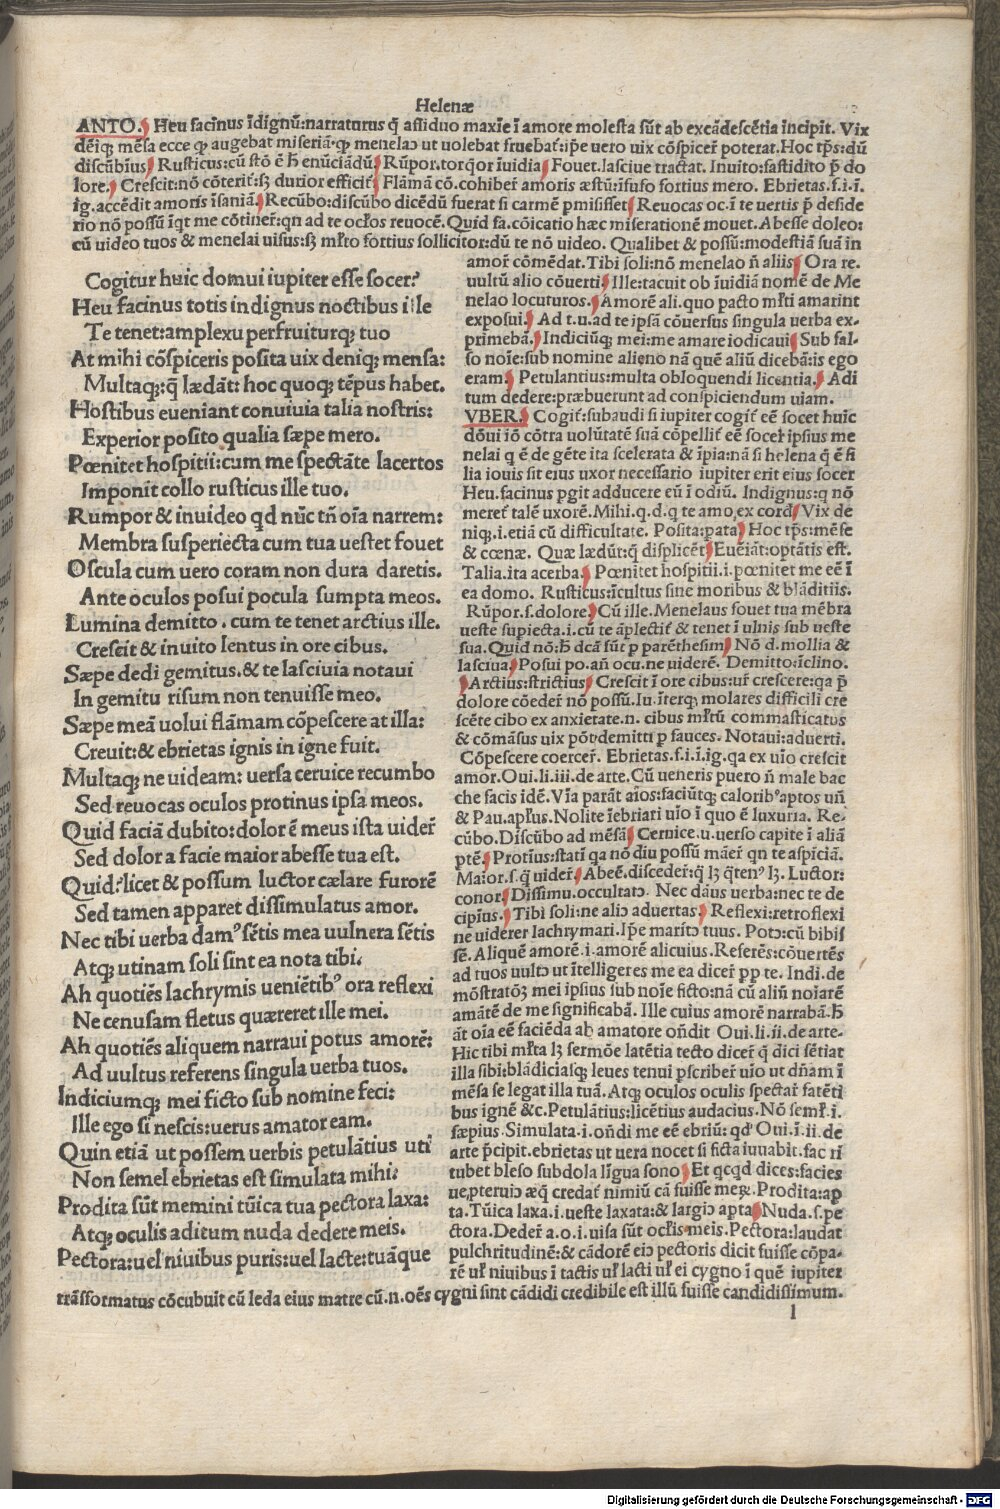 Helenæ
ANTO. Heu facinus īdignū:narraturus q̄ assiduo maxīe ī amore molesta sūt ab excādescētia īncipit. Vix
dēiq; mēsa ecce qꝫ augebat miseriā.qꝫ menelaɔ ut uolebat fruebat̄:ip̄e uero uix cōspicer̄ poterat.Hoc tp̄s:dū
discūbīus Rusticus:cū stō ē ħ enūciādū Rūpor.torq̄or īuidia Fouet.lasciue tractat. Inuito:fastidito p̄ do
lore. Crescit:nō cōterit̄:sꝫ durior efficit̄ Flāmā cō.cohiber̄ amoris æstū:īfuso fortius mero. Ebrietas.f.i.ī.
ig.accēdit amoris īsaniā Recūbo:discūbo dicēdū fuerat si carmē pmisisset Reuocas oc.i te uertis p̄ deside
rio nō possū īqt me cōtiner̄:qn ad te ocl̄os reuocē.Quid fa.cōicatio hæc miserationē mouet.Abesse doleo:
cū uideo tuos & menelai uisus:sꝫ ml̄to fortius sollicitor:dū te nō uideo. Qualibet & possū:modestiā suā in
Cogitur huic domui iupiter esse socer?
Heu facinus totis indignus noctibus ille
Te tenet:amplexu perfruiturqꝫ tuo
At mihi cōspiceris posita uix deniqꝫ mensa:
Multaqꝫ:q̄ lædāt: hoc quoqꝫ tēpus habet.
Hostibus eueniant conuiuia talia nostris:
Experior posito qualia sæpe mero.
Pœnitet hospitii:cum me spectāte lacertos
Imponit collo rusticus ille tuo.
Rumpor & inuideo qd nūc tñ oīa narrem:
Membra superiecta cum tua uestet fouet
Oscula cum uero coram non dura daretis.
Ante oculos posui pocula sumpta meos.
Lumina demitto . cum te tenet arctius ille.
Crescit & inuito lentus in ore cibus.
Sæpe dedi gemitus.& te lasciuia notaui
In gemitu risum non tenuisse meo.
Sæpe meā uolui flāmam cōpescere at illa:
Creuit:& ebrietas ignis in igne fuit.
Multaqꝫ ne uideam: uersa ceruice recumbo
Sed reuocas oculos protinus ipsa meos.
Quid faciā dubito:dolor ē meus ista uider̄
Sed dolor a facie maior abesse tua est.
Quid?licet & possum luctor cælare furorē
Sed tamen apparet dissimulatus amor.
Nec tibi uerba damꝰ sētis mea uulnera sētis
Atqꝫ utinam soli sint ea nota tibi.
Ah quotiēs lachrymis ueniētibꝰ ora reflexi
Ne cenusam fletus quæreret ille mei.
Ah quotiēs aliquem narraui potus amorē:
Ad uultus referens singula uerba tuos.
Indiciumqꝫ mei ficto sub nomine feci:
Ille ego si nescis:uerus amator eam.
Quin etiā ut possem uerbis petulātius uti
Non semel ebrietas est simulata mihi:
Prodita sūt memini tūica tua pectora laxa:
Atqꝫ oculis aditum nuda dedere meis.
Pectora:uel niuibus puris:uel lacte:tuāque
amor̄ cōmēdat.Tibi soli:nō menelao ñ aliis Ora re.
uultū alio cōuerti Ille:tacuit ob īuidiā nomē de Me
nelao locuturos. Amorē ali.quo pacto ml̄ti amarint
exposui. Ad t.u.ad te ipsā cōuersus singula uerba ex-
primebā. Indiciūqꝫ mei:me amare iodicaui Sub fal-
so noīe:sub nomine alieno nā quē aliū dicebā:is ego
eram Petulantius:multa obloquendi licentia. Adi
tum dedere:præbuerunt ad conspiciendum uiam.
VBER. Cogit̄:subaudi si iupiter cogit̄ eē socet huīc
dōui iō cōtra uolūtatē suā cōpellit̄ eē socer ipsius me
nelai q ē de gēte ita scelerata & īpia:nā si helena q̄ ē fi
lia iouis sit eius uxor necessario iupiter erit eius socer
Heu.facinus pgit adducere eū ī odiū. Indignus:q nō
meret̄ talē uxorē.Mihi.q.d.q te amo,ex cord Vix de
niq.i.etiā cū difficultate. Posita:pata Hoc tp̄s:mēse
& cœnæ. Quæ lædūt:q̄ displicēt Eueīāt:optātis est.
Talia.ita acerba. Pœnitet hospitii.i.pœnitet me eē ī
ea domo. Rusticus:īcultus sine moribus & blāditiis.
Rūpor.s.dolore Cū ille.Menelaus fouet tua mēbra
ueste supiecta.i.cū te āplectit̄ & tenet ī ulnis sub ueste
sua.Quid nō:ħ dcā sūt p parēthesim Nō d.mollia &
lasciua Posui po.an̄ ocu.ne uiderē. Demitto:īclino.
Arctius:strictius Crescit ī ore cibus:ur̄ crescere:qa p̄
dolore cōeder̄ nō possū.Iu.īterqꝫ molares difficili cre
scēte cibo ex anxietate.n. cibus ml̄tū commasticatus
& cōmāsus uix pōt demitti p fauces. Notaui:aduerti.
Cōpescere coercer̄. Ebrietas.f.i.ī.ig.qa ex uīo crescit
amor.Oui.li.iii.de arte.Cū ueneris puero ñ male bac
che facis īdē. Vīa parāt aīos:faciūtqꝫ caloribꝰaptos uñ
& Pau.apl̄us.Nolite īebriari uīo ī quo ē luxuria. Re-
cūbo.Discūbo ad mēsā Ceruice.u.uerso capite ī aliā
ptē Protīus:statī qa nō diu possū māer̄ qn te aspīciā.
Maior.s.q̄ uider̄ Abeē.disceder̄:q̄ lꝫ q̄tenꝰ lꝫ. Luctor:
conor Dissimu.occultatɔ Nec dāus uerba:nec te de
cipīus. Tibi soli:ne aliɔ aduertas Reflexi:retroflexi
ne uiderer lachrymari.Ip̄e maritɔ tuus. Potɔ:cū bibis
sē.Aliquē amorē.i.amorē alicuius.Referēs:cōuertēs
ad tuos uultɔ ut ītelligeres me ea dicer̄ pp te. Indi.de
mōstratōꝫ mei ipsius sub noīe ficto:nā cū aliū noīarē
amātē de me significabā. Ille cuius amorē narrabā.ħ
āt oīa eē faciēda ab amatore oñdit Oui.li.ii.de arte-
Hic tibi ml̄ta lꝫ sermōe latētia tecto dicer̄ q̄ dici sētiat
illa sibi:blādiciasqꝫ leues tenui pscriber̄ uīo ut dñam ī
mēsa se legat illa tuā. Atqꝫ oculos oculis spectar̄ fatēti
bus ignē &c.Petulātius:licētius audacius.Nō seml̄.i.
sæpius.Simulata.i.oñdi me eē ebriū:qd' Oui.i.ii.de
arte p̄cipit.ebrietas ut uera nocet si ficta iuuabit.fac tī
tubet bleso subdola līgua sono Et qcqd dices:facies
ue,pteruiɔ æq̄ credat̄ nimiū cā fuisse meꝝ.Prodita:ap
ta.Tūica laxa.i.ueste laxata:& largiɔ apta Nuda.s.pe
ctora.Deder̄ a.o.i.uisa sūt ocl̄is meis.Pectora:laudat
pulchritudinē:& cādorē eiɔ pectoris dicit fuisse cōpa-
rē ul̄ niuibus ī tactis ul̄ lacti ul̄ ei cygno ī quē iupiter
trāsformatus cōcubuit cū leda eius matre cū.n.oēs cygni sint cādidi credibile est illū fuisse candidissimum.
l
Digitalisierung gefördert durch die Deutsche Forschungsgemeinschaft - DFG